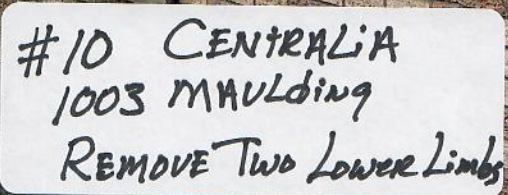 #10 CENTRALiA
1003 MAULding
REMOVE Two Lower Limbs